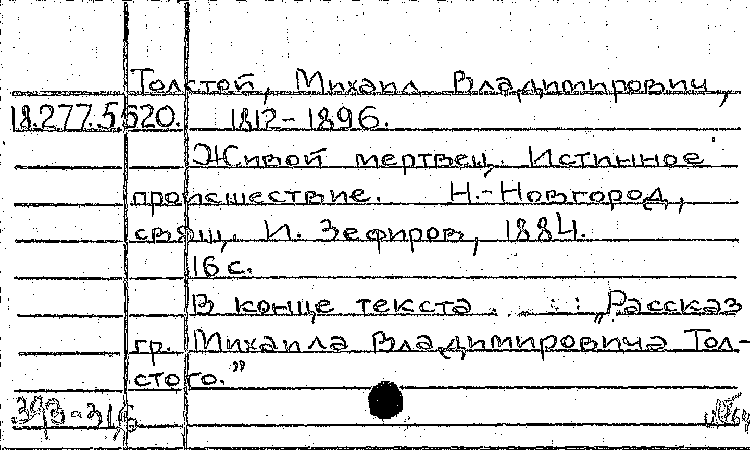 Толстой, Михаил Владимирович,
18.277.5.520. 1812-1896.
Живой мертвец. Истинное
происшествие. Н.-Новгород,
свящ. И. Зефиров, 1884.
16 с.
В конце текста . . . : "Рассказ
гр. Михаила Владимировича Тол-
стого."